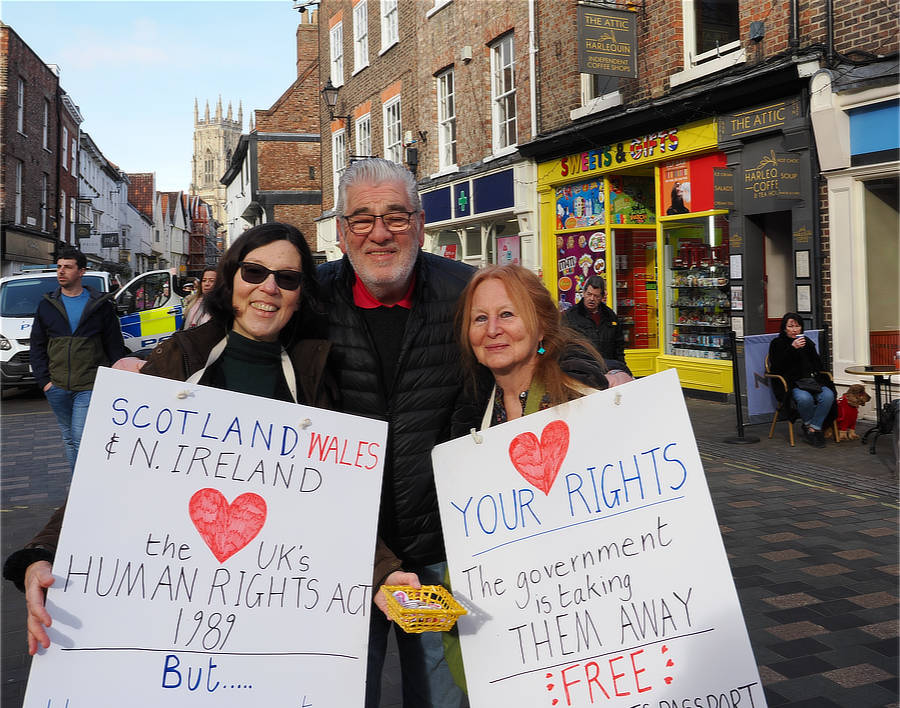 THE ATTIC
HARLEQUIN
INDEPENDENT
COFFEE SHOPS
SWEETS & GIFTS
THE ATTIC
HARLEQUIN
COFFEE & TEA
SALADS
SOUP
SCOTLAND, WALES
& N. IRELAND
the UK's
HUMAN RIGHTS ACT
1989
But.....
YOUR RIGHTS
The government
is taking
THEM AWAY
FREE
PASSPORT